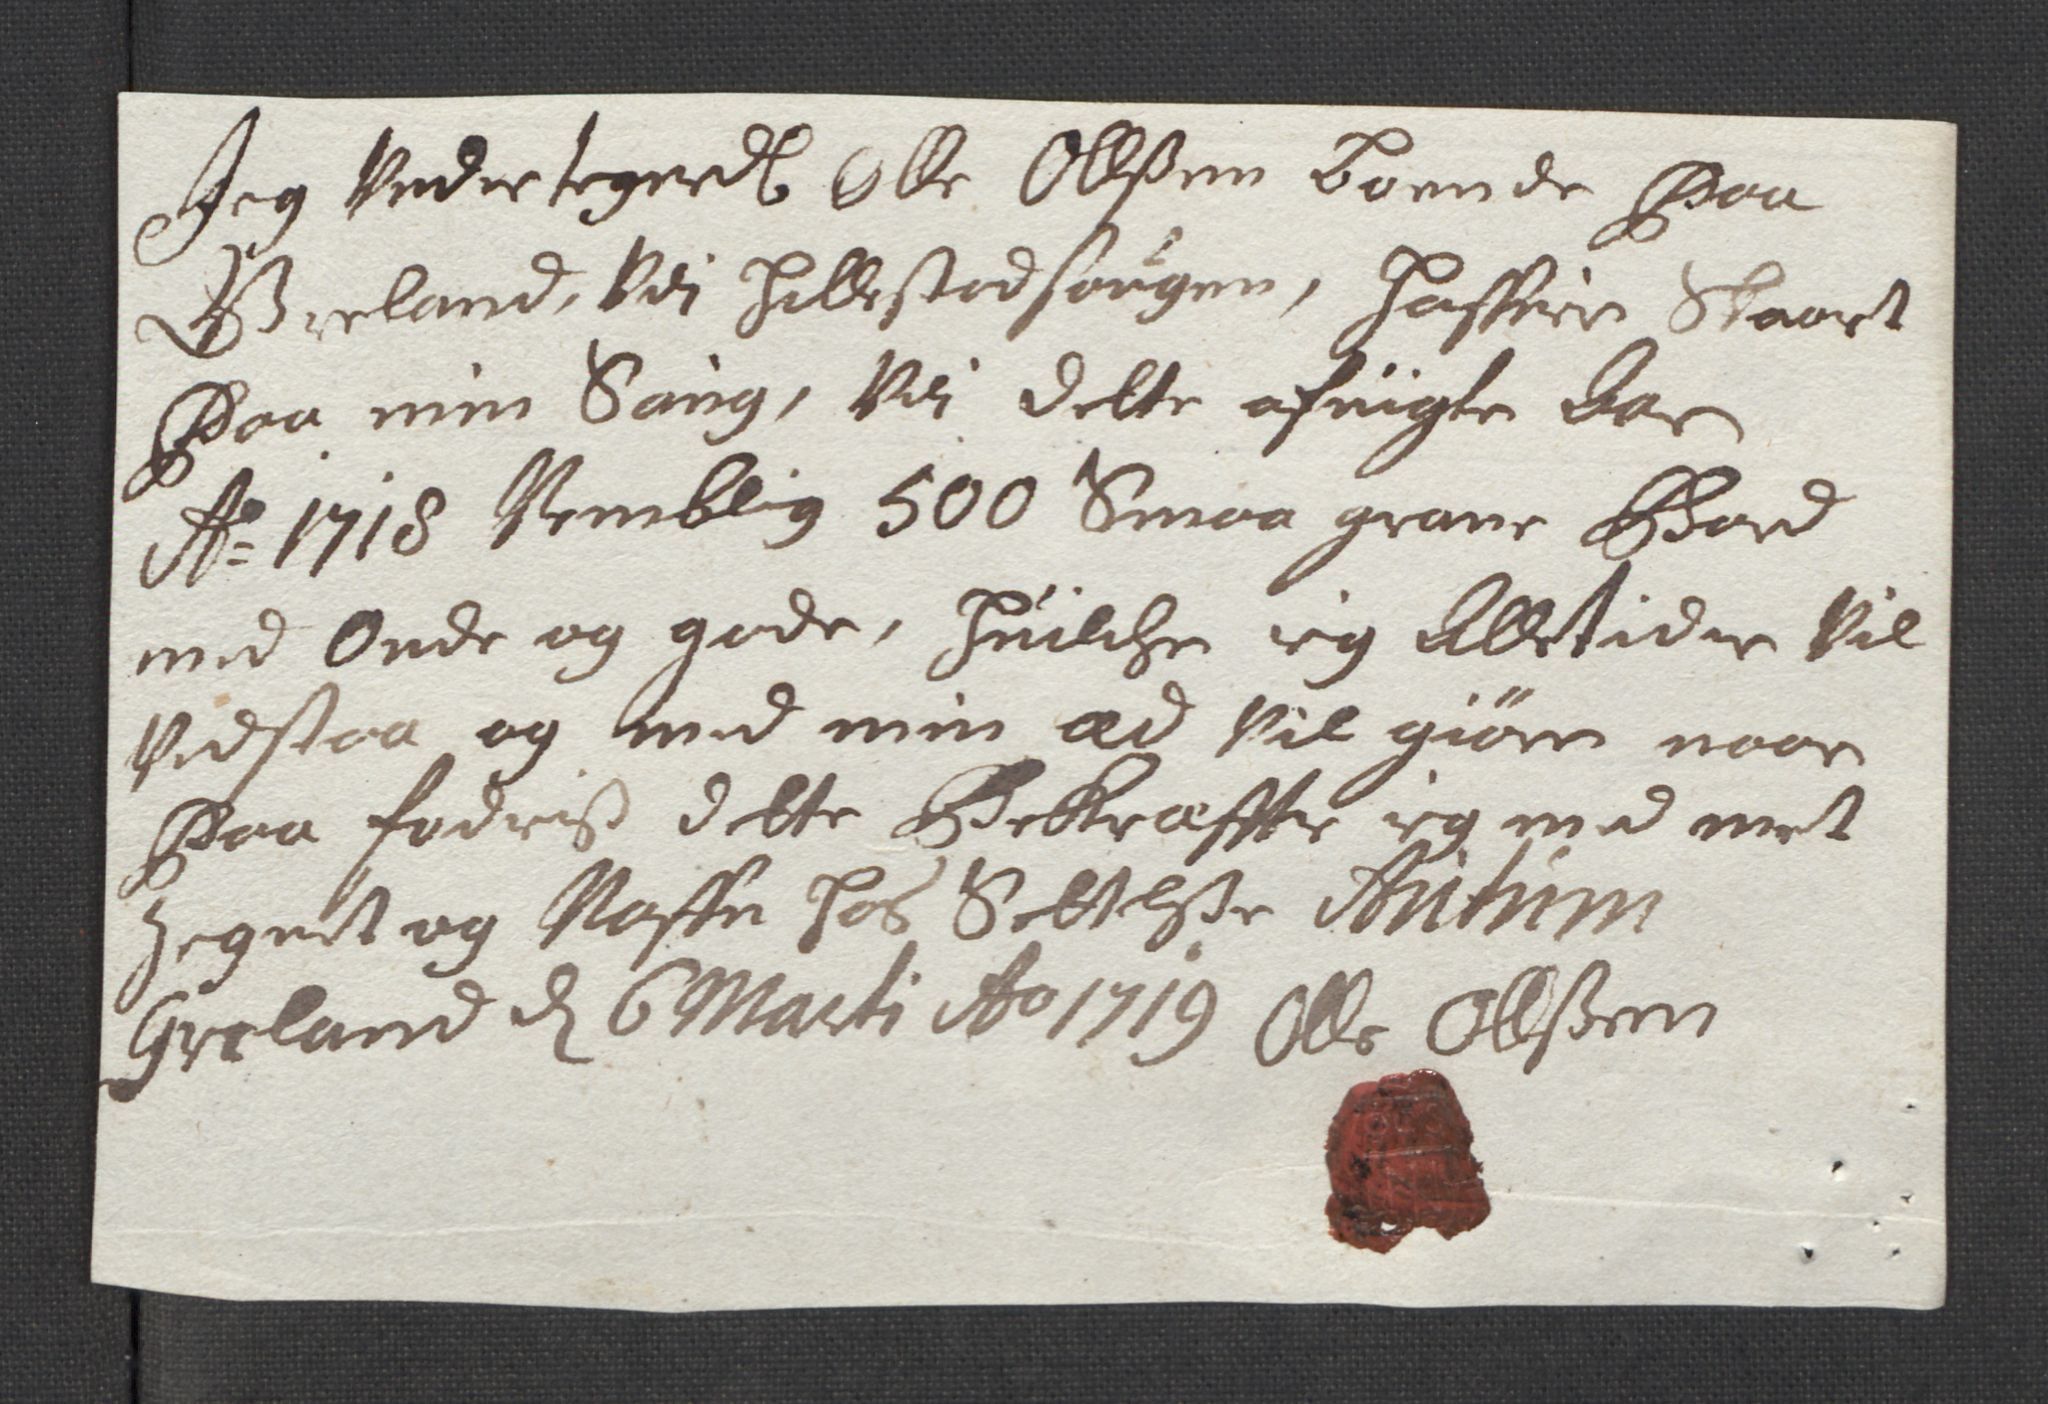 Jeg Vnder tegned Olle Ollßen Boende Paa
Greland, Vdi Hillestad sougen, Haffuer Skaaret
Paa min Saug, Vdi dette afvigte Aar
Ao 1718 Nemblig 500 Smaa grane Bord
med Onde og gode, Huilche ieg Alletider Vil
Vedstaa og med min æd Vil giöre naar
Paa fodriß dette Bekræffter ieg med met
Zegnet og Naffn hos Settelße
Greland d 6 Marti Ao 1719 Olle Ollßen